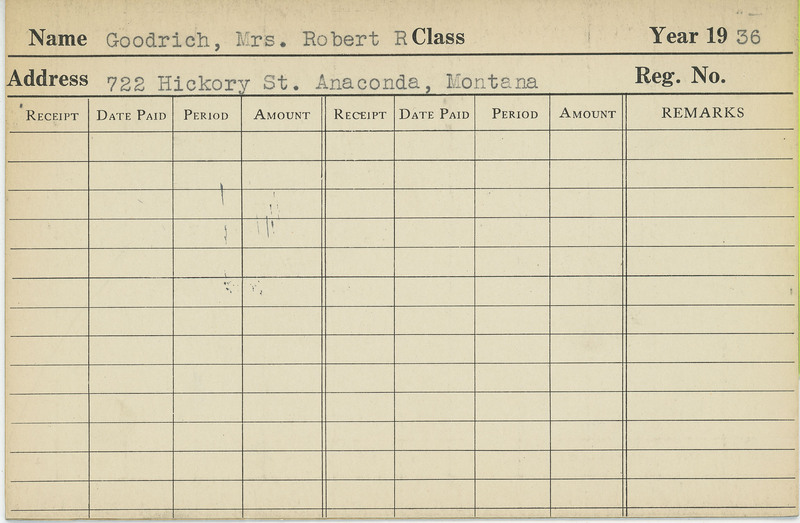 Name Goodrich, Mrs. Robert R Class Year 19 36
Address 722 Hickory St. Anaconda, Montana Reg. No.
RECEIPT DATE PAID PERIOD AMOUNT RECEIPT DATE PAID PERIOD AMOUNT REMARKS